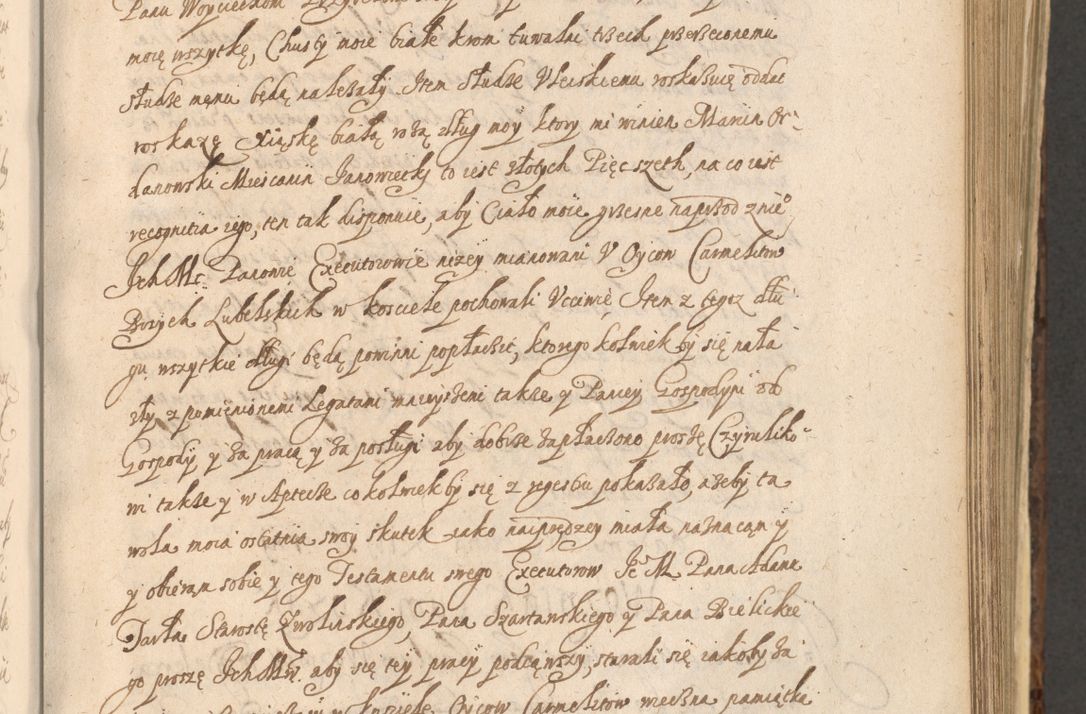 Panu Woyciechowi
moię wszytkę, Chusty moie białe krom tuwalni trzech przerzeconemu
słudze memu będą należały Item Słudze Uleiskiemu roskazuię oddać
roskazę Xiąskę białą
długi moy ktory mi winien Marcin Or-
danowski Miesczanin Janowiecky to iest złotych Pięc szeth, na co iest
recognitia iego, ten tak disponuie, aby Ciało moie grzeszne naprzod z nie°
Ich Mć. Panowie Executorowie nizey mianowani V Oycow Carmelitow
Bosych Lubelskich w kosciele pochowali Uczciwie Item z tegoz dłu
gu wszytkie długi będą powinni popłacić, ktorego kolwiek by się nala
zły z pomienionemi Legatami małżyskiemi takze y Paniey Gospodyni od
Gospody y za pracą y za posługi aby dobrze zapłaczono proszę Czyruliko-
wi takze y w Aptecze co kolwiek by się z regestru pokazało, ażeby ta
wola moia ostatnia swoy skutek iako naiprędzey miała naznaczam y
y obieram sobie y tego Testamentu swego Executorow Je° M. Pana Adama
Tarła Starostę Zwolińskiego, Pana Szartanskiego y Pana Bielickie
go proszę Ich Mći. aby się tey pracy podeiąwszy, starali się iakoby za
Oycow Carmelitow wieczna pamiątka